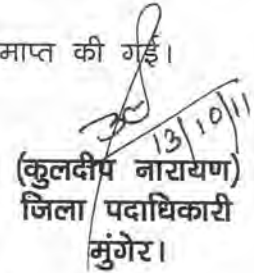 माप्त की गई।
13/10/11
(कुलदीप नारायण)
जिला पदाधिकारी
मुंगेर।